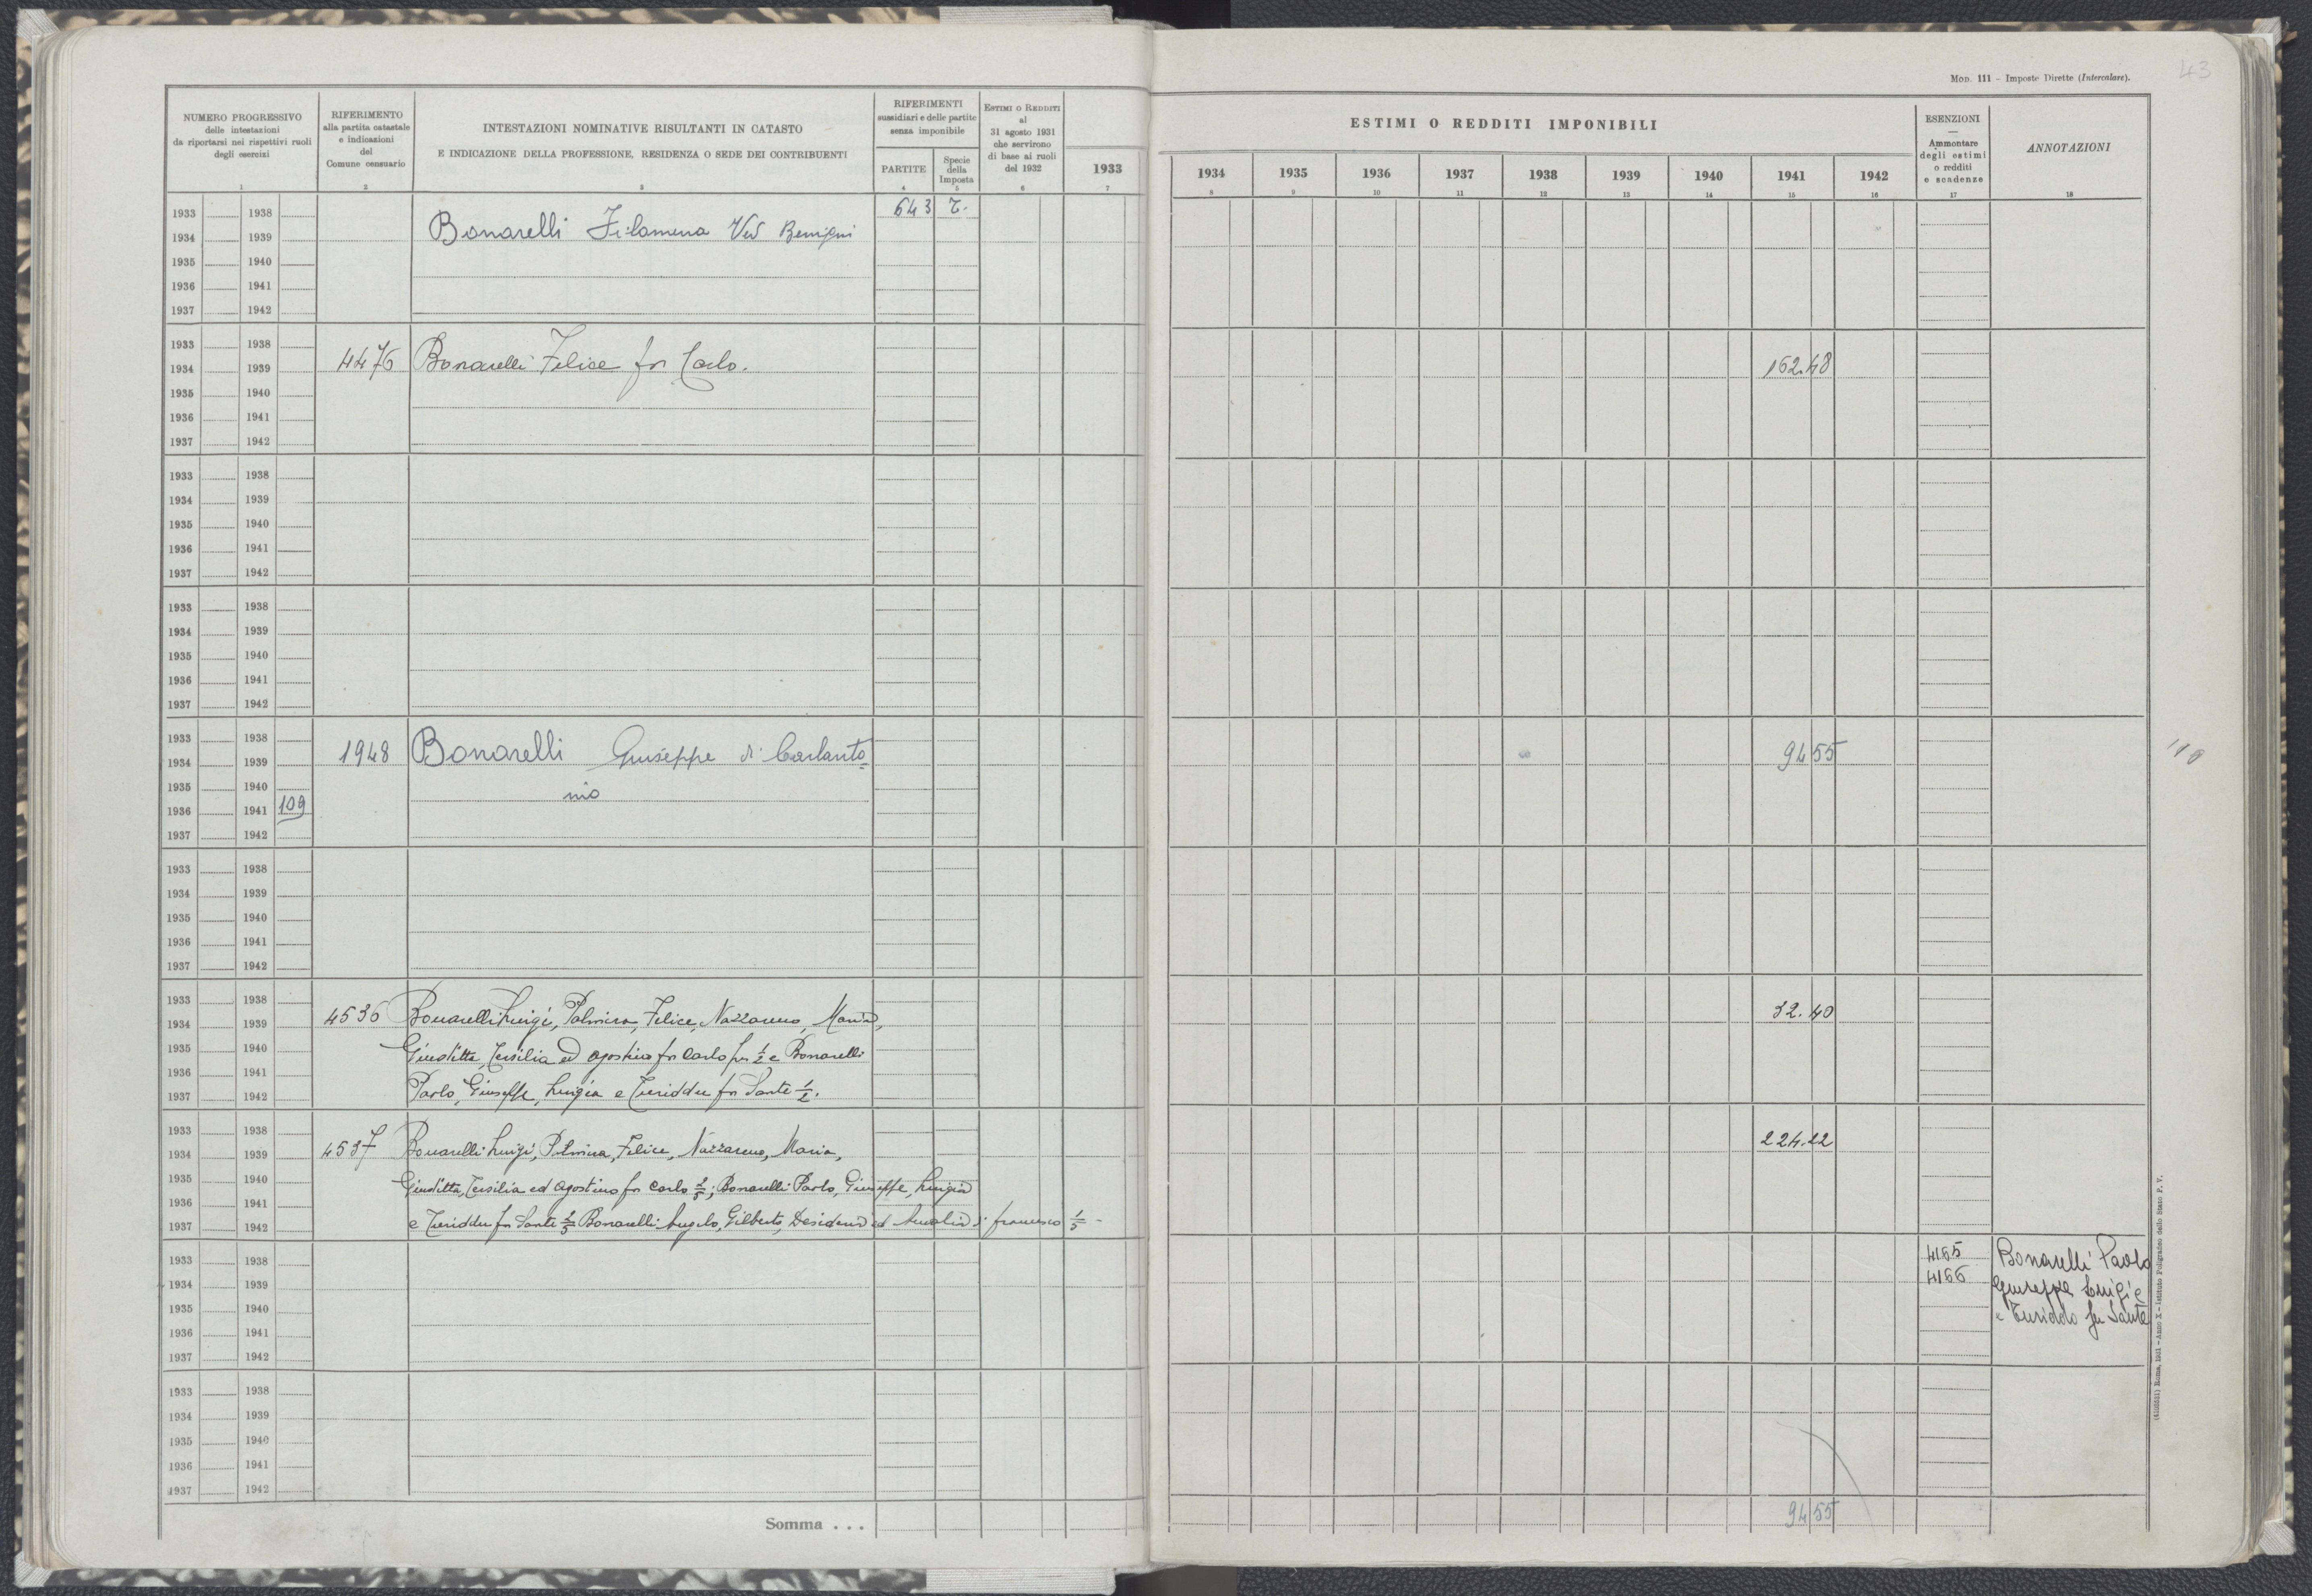 Mod. 111 - Imposte Dirette (Intercalare).
43
NUMERO PROGRESSIVO
delle intestazioni
da riportarsi nei rispettivi ruoli
degli esercizi
1
RIFERIMENTO
alla partita catastale
e indicazioni
del
Comune censuario
2
INTESTAZIONI NOMINATIVE RISULTANTI IN CATASTO
E INDICAZIONE DELLA PROFESSIONE, RESIDENZA O SEDE DEI CONTRIBUENTI
3
RIFERIMENTI
sussidiari e delle partite
senza imponibile
PARTITE
4
Specie
della
Imposta
5
ESTIMI O REDDITI
al
31 agosto 1931
che servirono
di base ai ruoli
del 1932
6
1933
7
ESTIMI O REDDITI IMPONIBILI
1934 1935 1936 1937 1938 1939 1940 1941 1942
8 9 10 11 12 13 14 15 16
ESENZIONI
—
Ammontare
degli estimi
o redditi
e scadenze
17
ANNOTAZIONI
18
1933 1938 643 T.
Bonarelli Filomena Ved Benigni
1934 1939
1935 1940
1936 1941
1937 1942
1933 1938
1934 1939 4476 Bonarelli Felice fu Carlo. 162.48
1935 1940
1936 1941
1937 1942
1933 1938
1934 1939
1935 1940
1936 1941
1937 1942
1933 1938
1934 1939
1935 1940
1936 1941
1937 1942
1933 1938
1934 1939 1948 Bonarelli Giuseppe di Carlanto 94 55
1935 1940 nio
1936 1941 109
1937 1942
1933 1938
1934 1939
1935 1940
1936 1941
1937 1942
1933 1938
1934 1939 4536 Bonarelli Luigi, Palmira, Felice, Nazzareno, Maria, 32.40
1935 1940 Giuditta, Tersilia ed Agostino fu Carlo per 1/2 e Bonarelli
1936 1941
1937 1942 Paolo, Giuseppe, Luigia e Turiddu fu Sante 1/2.
1933 1938
1934 1939 4537 Bonarelli Luigi, Palmira, Felice, Nazzareno, Maria, 224.22
1935 1940 Giuditta, Tersilia ed Agostino fu Carlo 2/5; Bonarelli Paolo, Giuseppe, Luigia
1936 1941
1937 1942 e Turiddu fu Sante 2/5 Bonarelli Angelo, Gilberto, Desiderio ed Amalia di Francesco 1/5 -
1933 1938 4165 Bonarelli Paolo
1934 1939 4166 Giuseppe Luigia
1935 1940 e Turiddo fu Sante
1936 1941
1937 1942
1933 1938
1934 1939
1935 1940
1936 1941
1937 1942
Somma . . . 94 55
(4105251) Roma, 1931 - Anno X - Istituto Poligrafico dello Stato P. V.